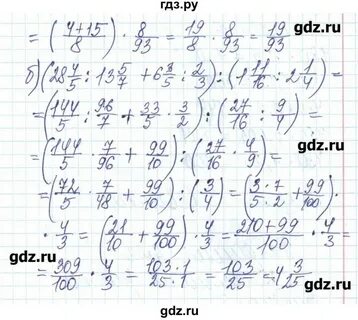 гдз.ру
= (4+15/8) · 8/93 = 19/8 · 8/93 = 19/93
б) (28 4/5 : 13 5/7 + 6 3/5 : 2/3) : (1 11/16 : 2 1/4) =
= (144/5 : 96/7 + 33/5 · 3/2) : (27/16 : 9/4) =
= (144/5 · 7/96 + 99/10) : (27/16 · 4/9) =
= (72/5 · 7/48 + 99/10) : (3/4) = (3·7/5·2 + 99/100) ·
· 4/3 = (21/10 + 99/100) · 4/3 = 210+99/100 · 4/3 =
= 309/100 · 4/3 = 103·1/25·1 = 103/25 = 4 3/25
gdz.ru